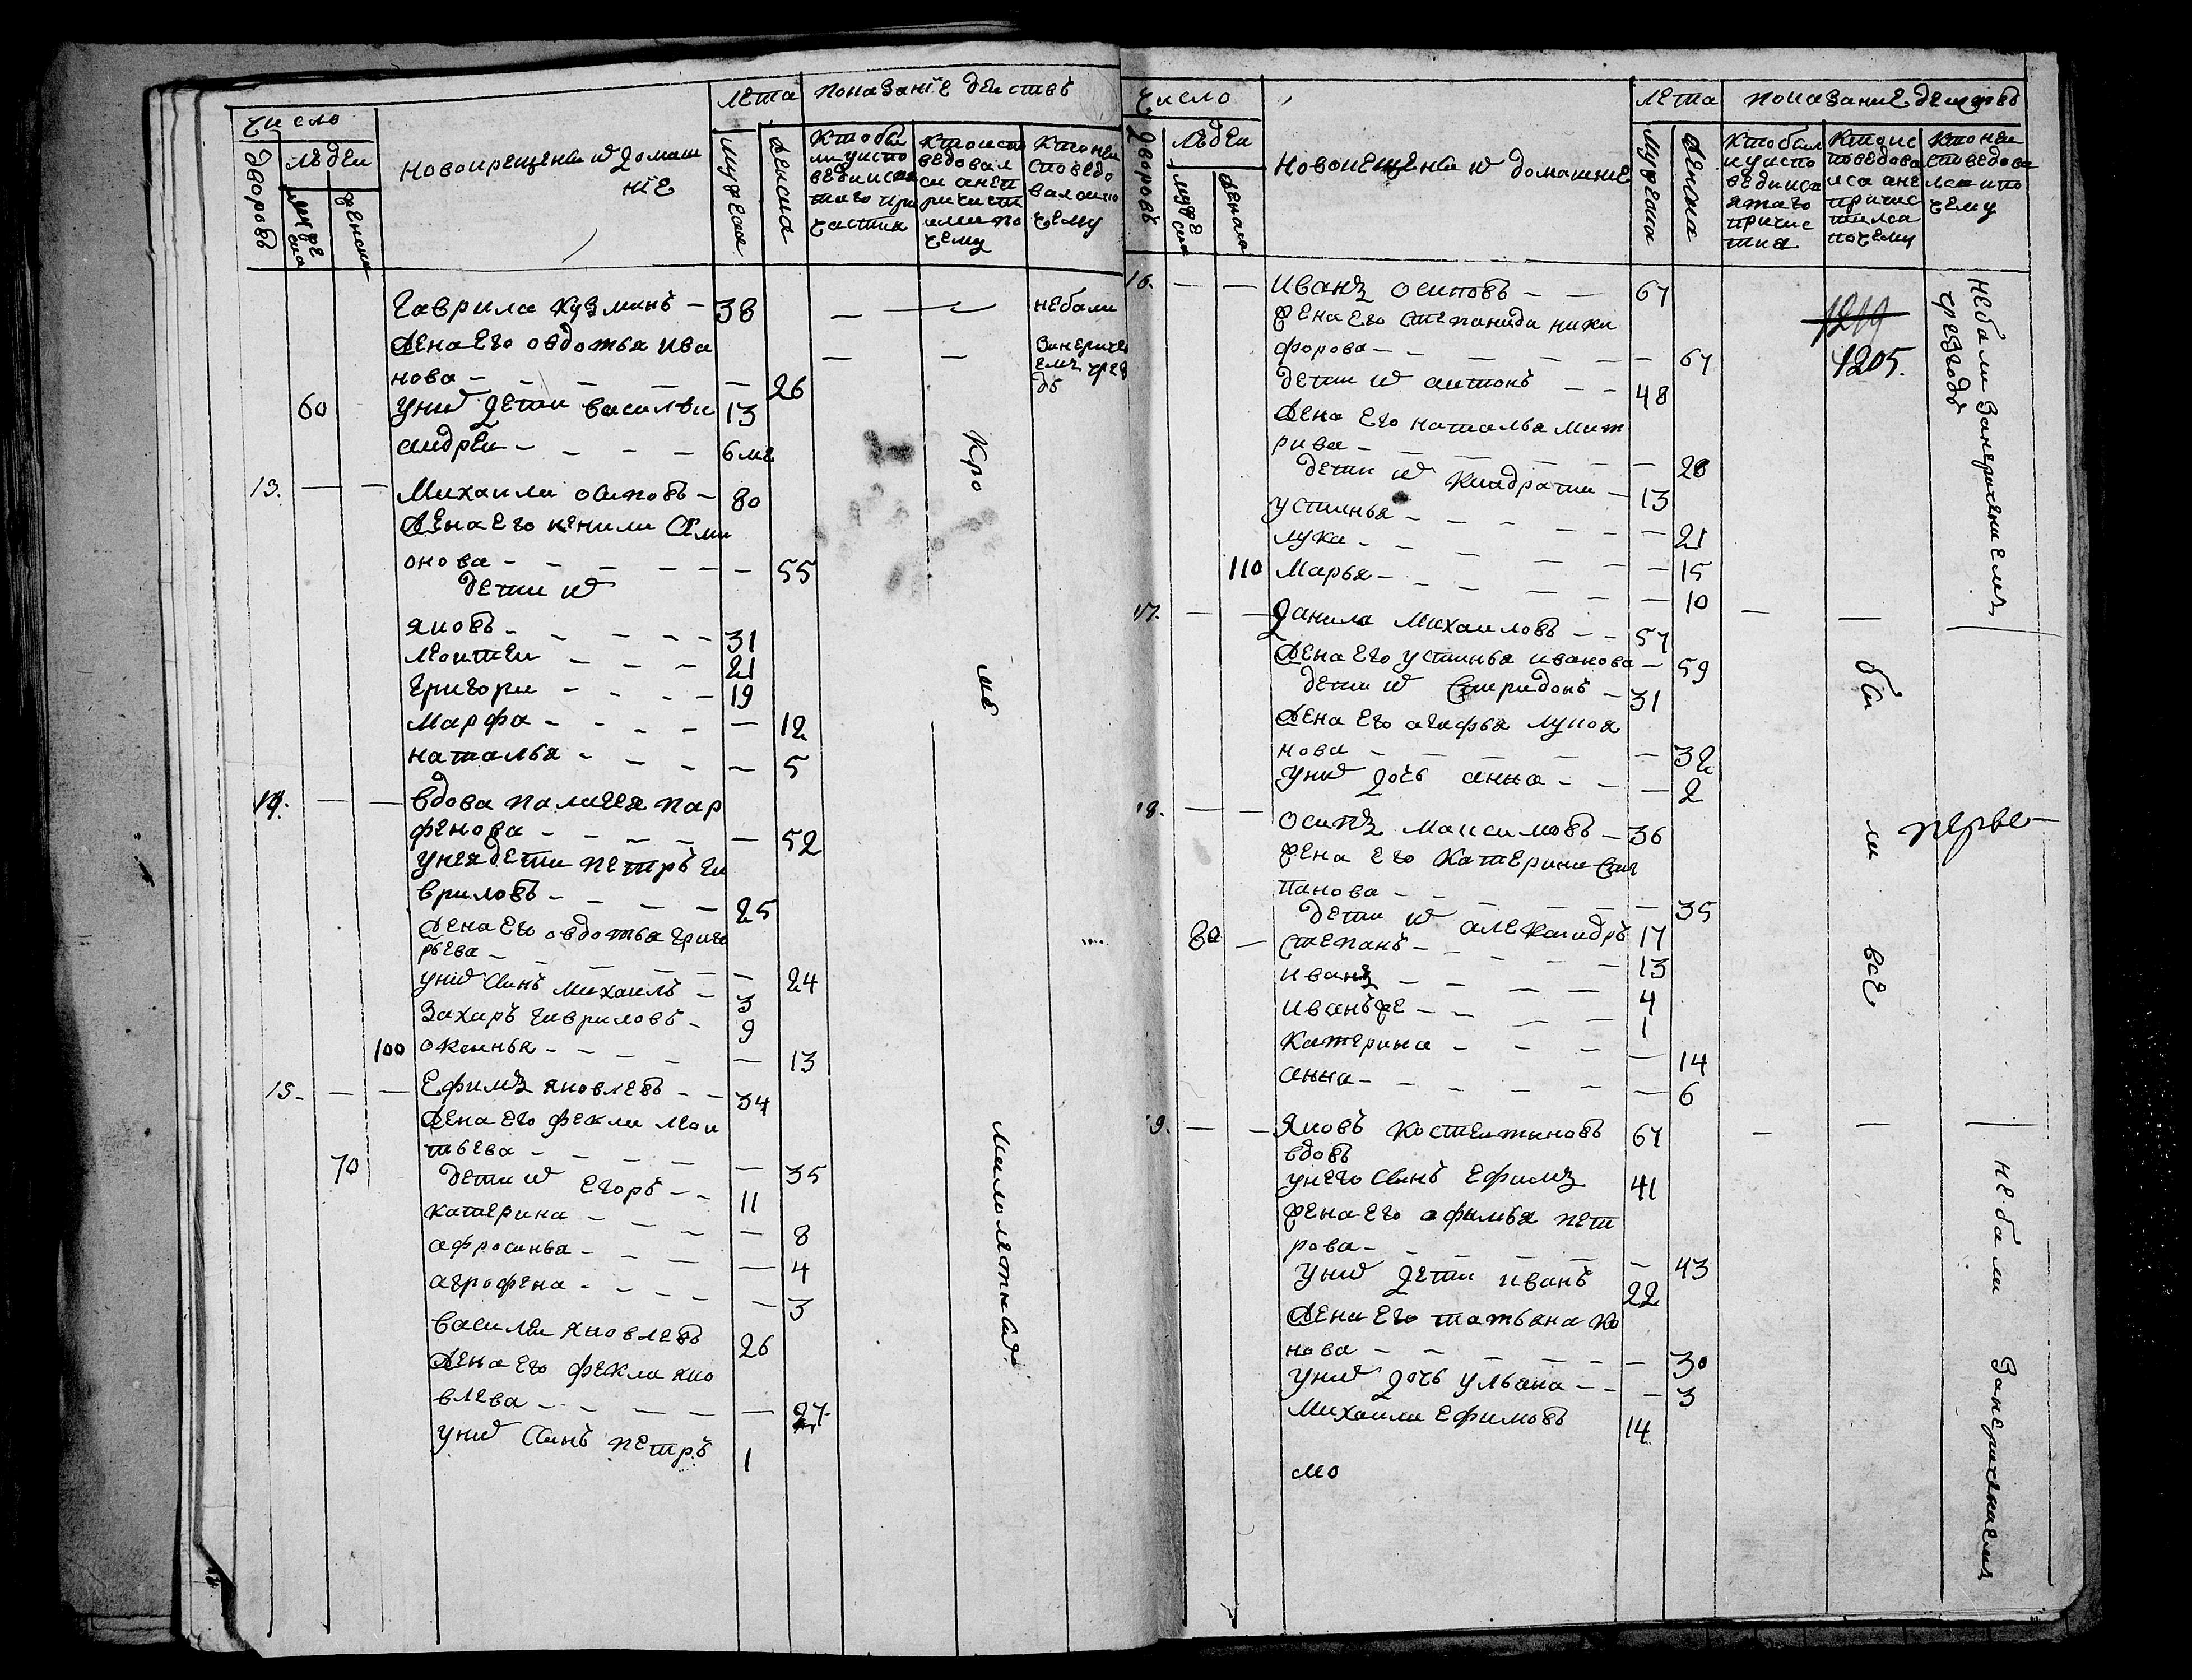 число
лѣта
показаніе деиствъ
дворовъ
людеи
мужеска
женска
новокрещены и домаш
ніе
мужеска
женска
кто бы
ли у испо
веди и свя
таго при
частия
кто испо
ведовал
ся а не п
ричасти
и по
чему
кто не и
споведо
вался и по
чему
Гаврила кузминъ - 38
небыли
жена его овдотья ива
нова - 26
60 у них дети василеи 13
андреи - 6 ме
13. Михаила осиповъ - 80
жена его
онова - 55
дети их
яковъ - 31
леонтеи - 21
григореи - 19
марфа - 12
наталья - 5
14. вдова палагея пар
фенова - 52
у нея дети петръ га
вриловъ - 25
жена его овдотья григо
рьева - 24
у них сынъ михаилъ - 3
захаръ гавриловъ - 9
100 оксинья - 13
15. ефимъ яковлевъ - 34
жена его фекла леон
тьева - 35
70 дети их егоръ - 11
катерина - 8
афросинья - 4
агрофена - 3
василеи яковлевъ 26
жена его фекла яко
влева - 27
у них сынъ петръ 1
кро
ме
малолетных
число
лѣта
показание деиствъ
дворовъ
людеи
мужеска
женска
новокрещены и домашние
мужеска
женска
кто был
и у испо
веди и св
ятаго
причас
тия
кто ис
поведова
лся а не
причас
тился
почему
кто не и
споведова
лся и по
чему
16. иванъ осиповъ - 67
жена его степанида ники
форова - 67
дети их антонъ - 48
жена его наталья мит
рива - 28
дети их кондратеи - 13
устинья - 21
лука - 15
110 марья - 10
1219
1205.
небыли
17. данила михаиловъ - 57
жена его устинья иванова - 59
дети их спиридонъ - 31
жена его агафья лукоя
нова - 32
у них дочь анна - 2
18. осипъ максимовъ - 36
жена его катерина сте
панова - 35
дети их александръ 17
80 степанъ - 13
иванъ - 4
иванъ же - 1
катерина - 14
анна - 6
бы
ли
все
19. яковъ костентиновъ 67
вдовъ
у него сынъ ефимъ 41
жена его афимья пет
рова - 43
у них дети иванъ 22
жена его татьяна ко
нова - 30
у них дочь ульяна - 3
михаила ефимовъ 14
мо
небыли